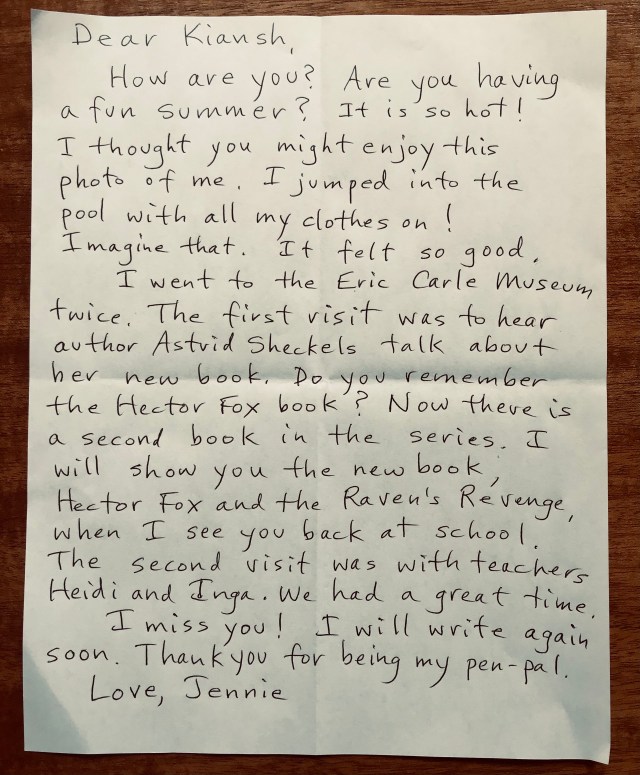 Dear Kiansh,
How are you? Are you having
a fun summer? It is so hot!
I thought you might enjoy this
photo of me. I jumped into the
pool with all my clothes on!
Imagine that. It felt so good.
I went to the Eric Carle Museum
twice. The first visit was to hear
author Astrid Sheckels talk about
her new book. Do you remember
the Hector Fox book? Now there is
a second book in the series. I
will show you the new book,
Hector Fox and the Raven's Revenge,
when I see you back at school.
The second visit was with teachers
Heidi and Inga. We had a great time.
I miss you! I will write again
soon. Thank you for being my pen-pal.
Love, Jennie